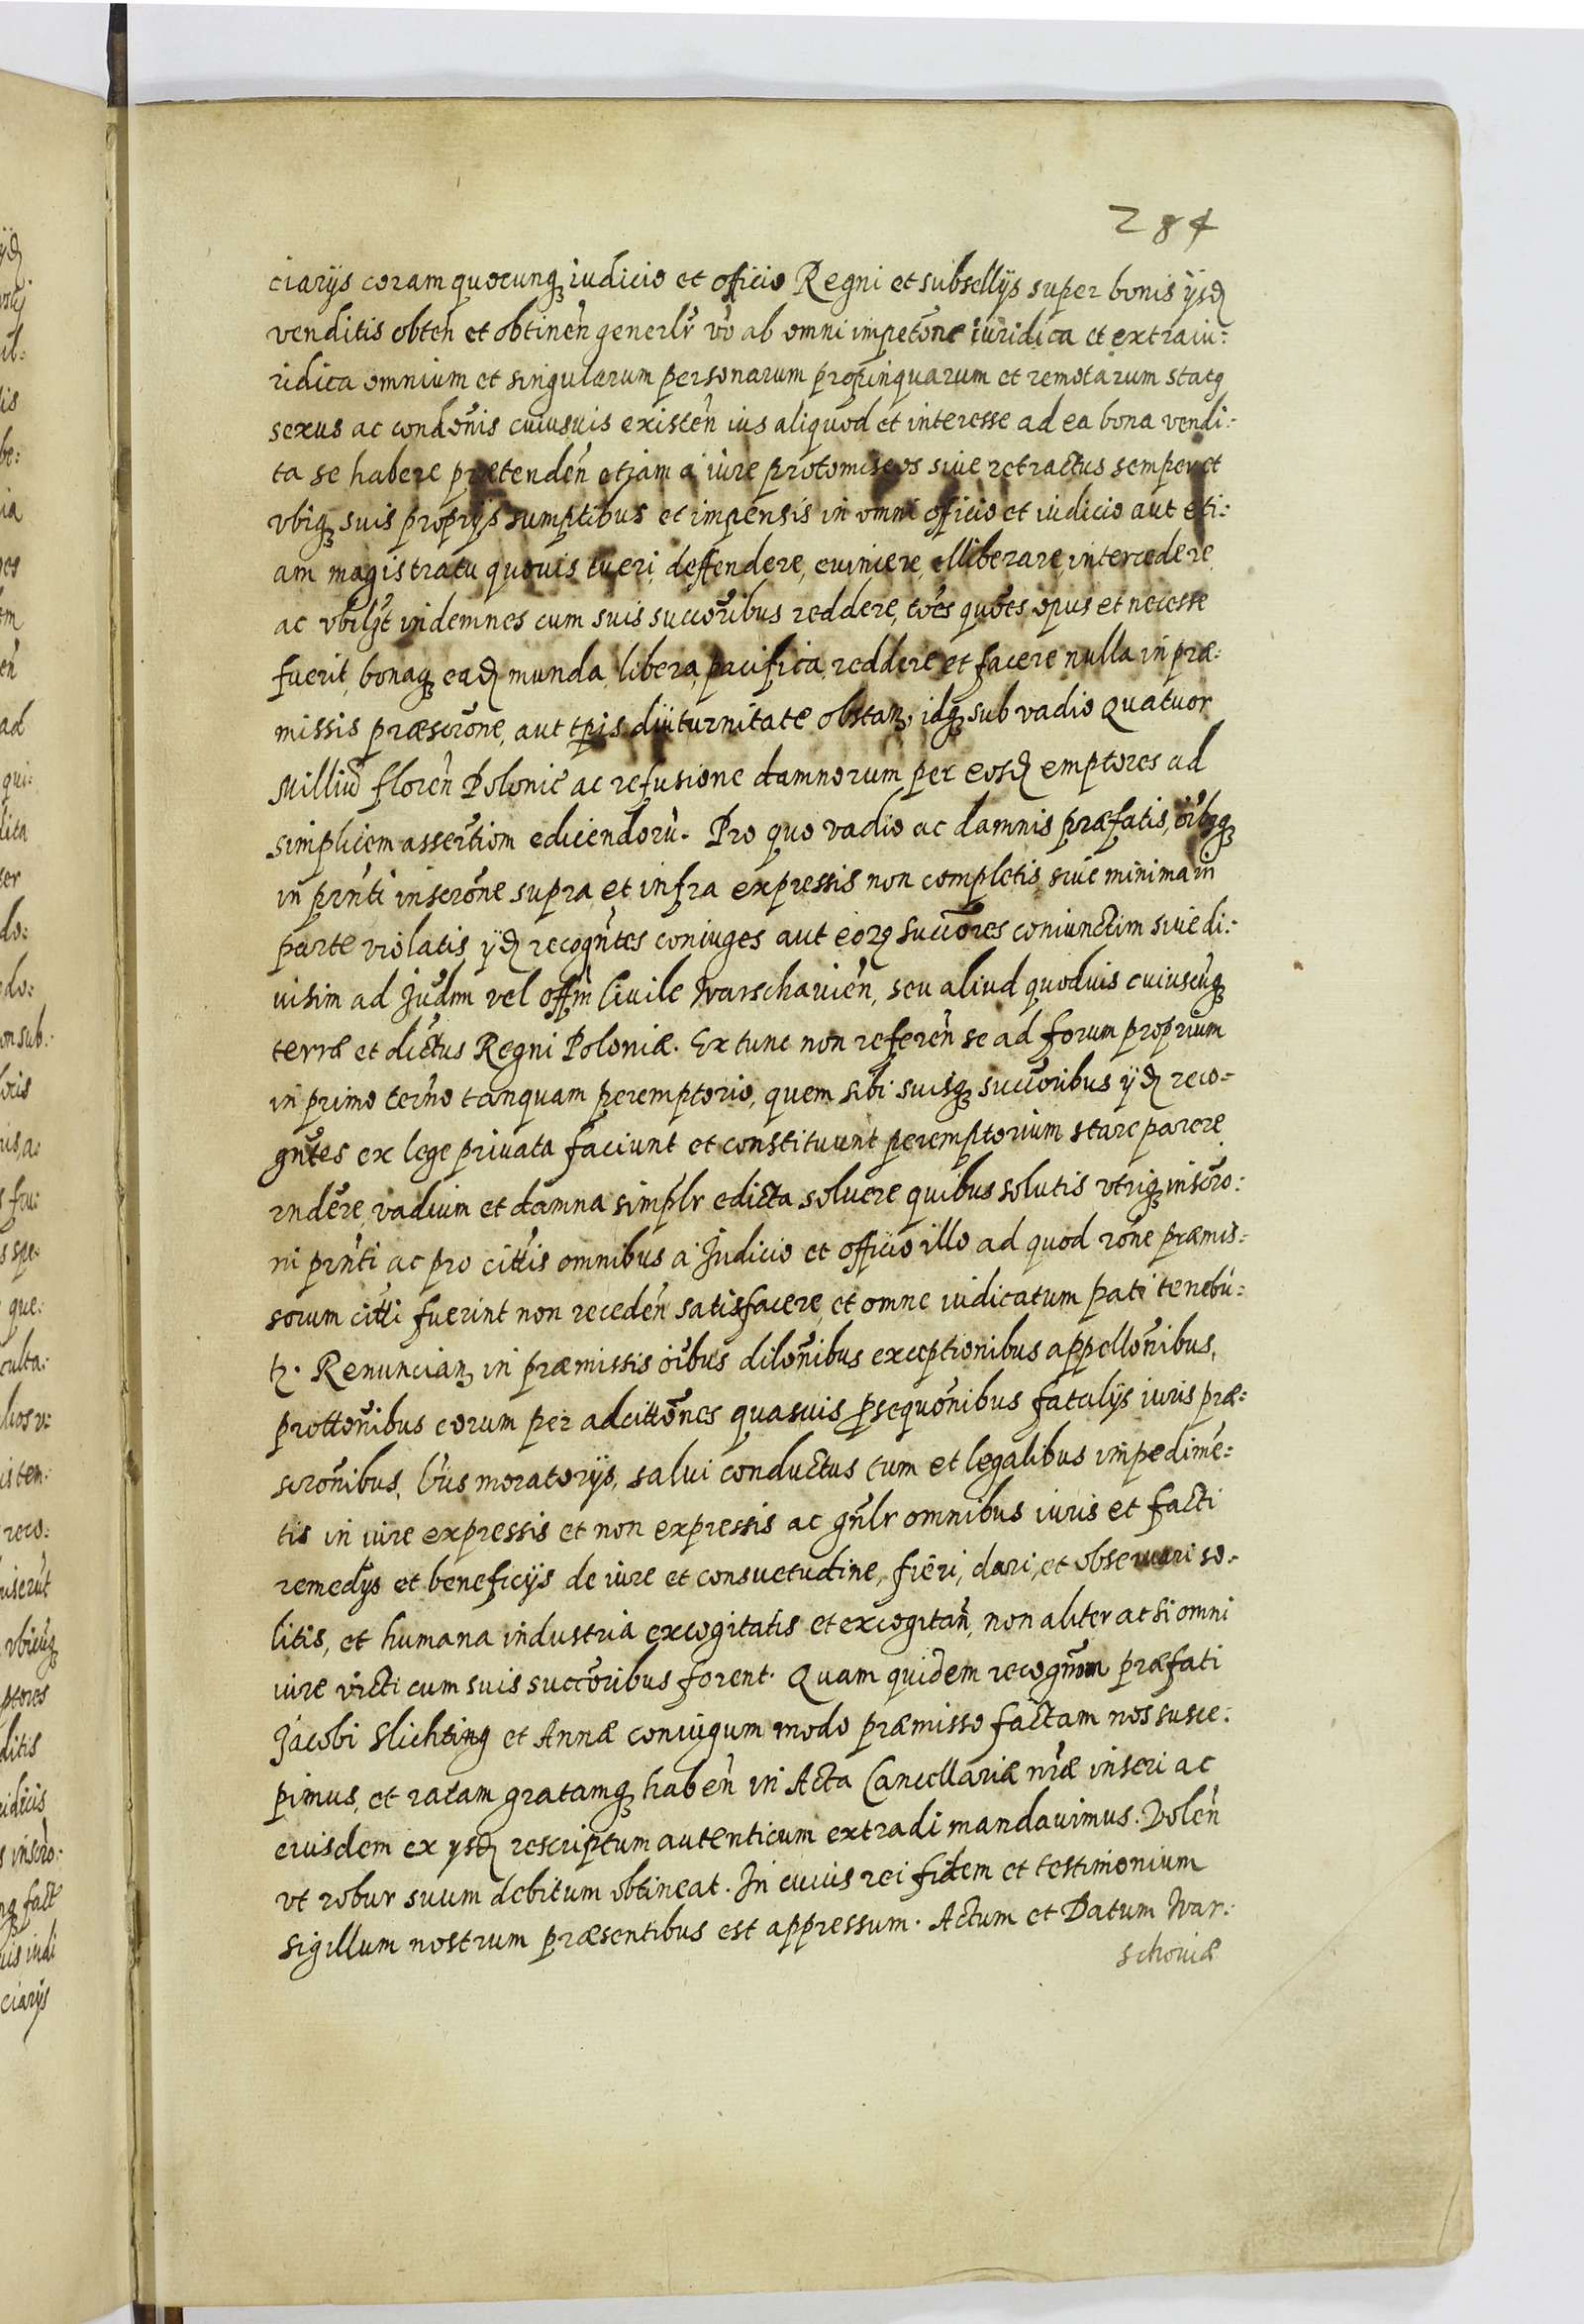 284
ciarijs coram quocunq iudicio et officio Regni et subsellijs super bonis ijsd
venditis obten̄ et obtinen̄ generlr̄ vō ab omni impetōne iuridica et extraiu:
ridica omnium et singularum personarum propinquarum et remotarum statq
sexus ac condōnis cuiusuis existen̄ ius aliquod et interesse ad ea bona vendi:
ta se habere prætenden̄ etiam a iure protomiseos siue retractus semper et
vbiq suis proprijs sumptibus et impensis in omni officio et iudicio aut eti:
am magistratu quouis tueri, deffendere, euincere, elliberare, intercedere
ac vbilqt indemnes cum suis succōribus reddere, tōes quōes opus et necesse
fuerit, bonaq ead munda, libera, pacifica, reddere et facere nulla in præ:
missis præscrōne, aut tpis diuturnitate obstan, idq sub vadio Quatuor
Milliū floren̄ Polonic̄ ac refusione damnorum per eosd emptores ad
simplicem assertiom edicendorū. Pro quo vadio ac damnis præfatis, oībq
in prn̄ti inscrōne supra et infra expressis non completis siue minima in
parte violatis ijd recogn̄tes coniuges aut eorq succōres coniunctim siue di:
uisim ad Judm vel offm Ciuile Warschauien̄, seu aliud quoduis cuiuscūq
terræ et dictus Regni Poloniæ. Ex tunc non referen̄ se ad forum proprium
in primo termō tanquam peremptorio, quem sibi suisq succōribus ijd reco:
gn̄tes ex lege priuata faciunt et constituunt peremptorium stare parere
rndēre, vadium et damna simplr edicta soluere quibus solutis vtriq inscrō:
ni prn̄ti ac pro cittis omnibus a Judicio et officio illo ad quod rōne præmis:
sorum citti fuerint non receden̄ satisfacere, et omne iudicatum pati tenebū:
tr. Renuncian in præmissis oībus dilōnibus exceptionibus appellōnibus,
prottōnibus eorum per adcittōnes quasuis psequōnibus fatalijs iuris præ:
scrōnibus, Lr̄is moratorijs, salui conductus tum et legalibus impedimē:
tis in iure expressis et non expressis ac gn̄lr omnibus iuris et facti
remedijs et beneficijs de iure et consuetudine, fieri, dari, et obseruari so:
litis, et humana industria excogitatis et excogitan̄, non aliter ac si omni
iure victi cum suis succōribus forent. Quam quidem recognōm præfati
Jacobi Slichting et Annæ coniugum modo præmisso factam nos susce:
pimus, et ratam gratamq haben̄ in Acta Cancellariæ nrǣ inseri ac
eiusdem ex ijsd rescriptum autenticum extradi mandauimus. Volen̄
vt robur suum debitum obtineat. In cuius rei fidem et testimonium
sigillum nostrum præsentibus est appressum. Actum et Datum War:
schouiæ